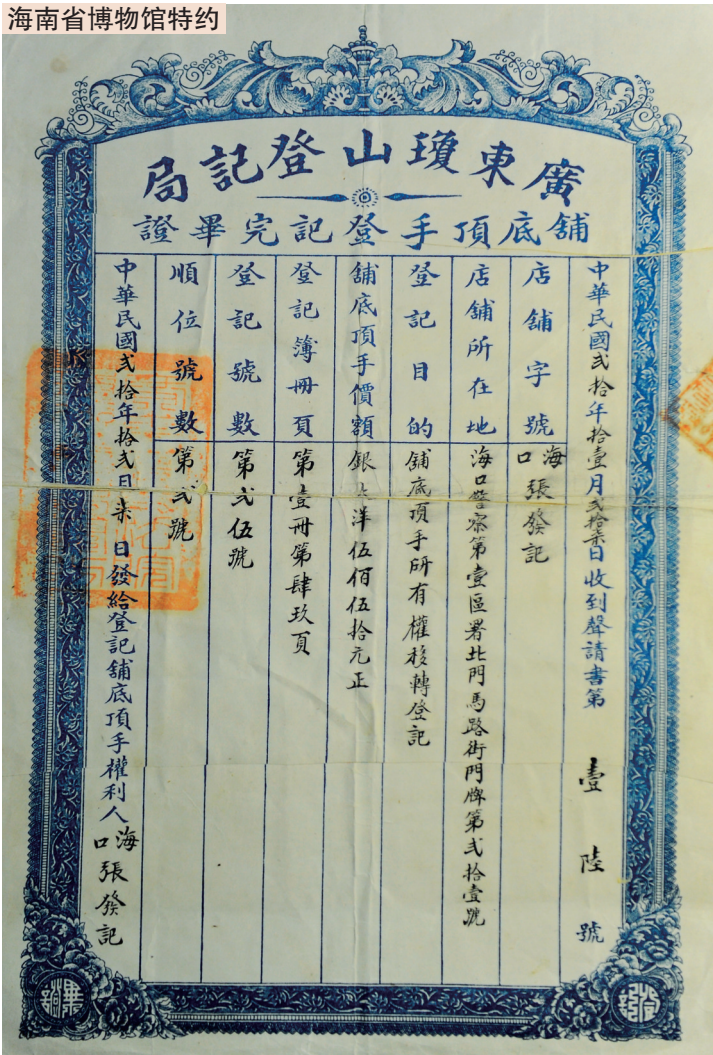 海南省博物馆特约
廣東瓊山登記局
舖底頂手登記完畢證
中華民國弍拾年拾壹月弍拾柒日收到聲請書第壹陸號
店舖字號 海口張發記
店舖所在地 海口警察第壹區署北門馬路街門牌第弍拾壹號
登記目的 舖底頂手所有權移轉登記
舖底頂手價額 銀大洋伍佰伍拾元正
登記簿冊頁 第壹冊第肆玖頁
登記號數 第弍伍號
順位號數 第弍號
中華民國弍拾年拾弍日柒日發給登記舖底頂手權利人海口張發記